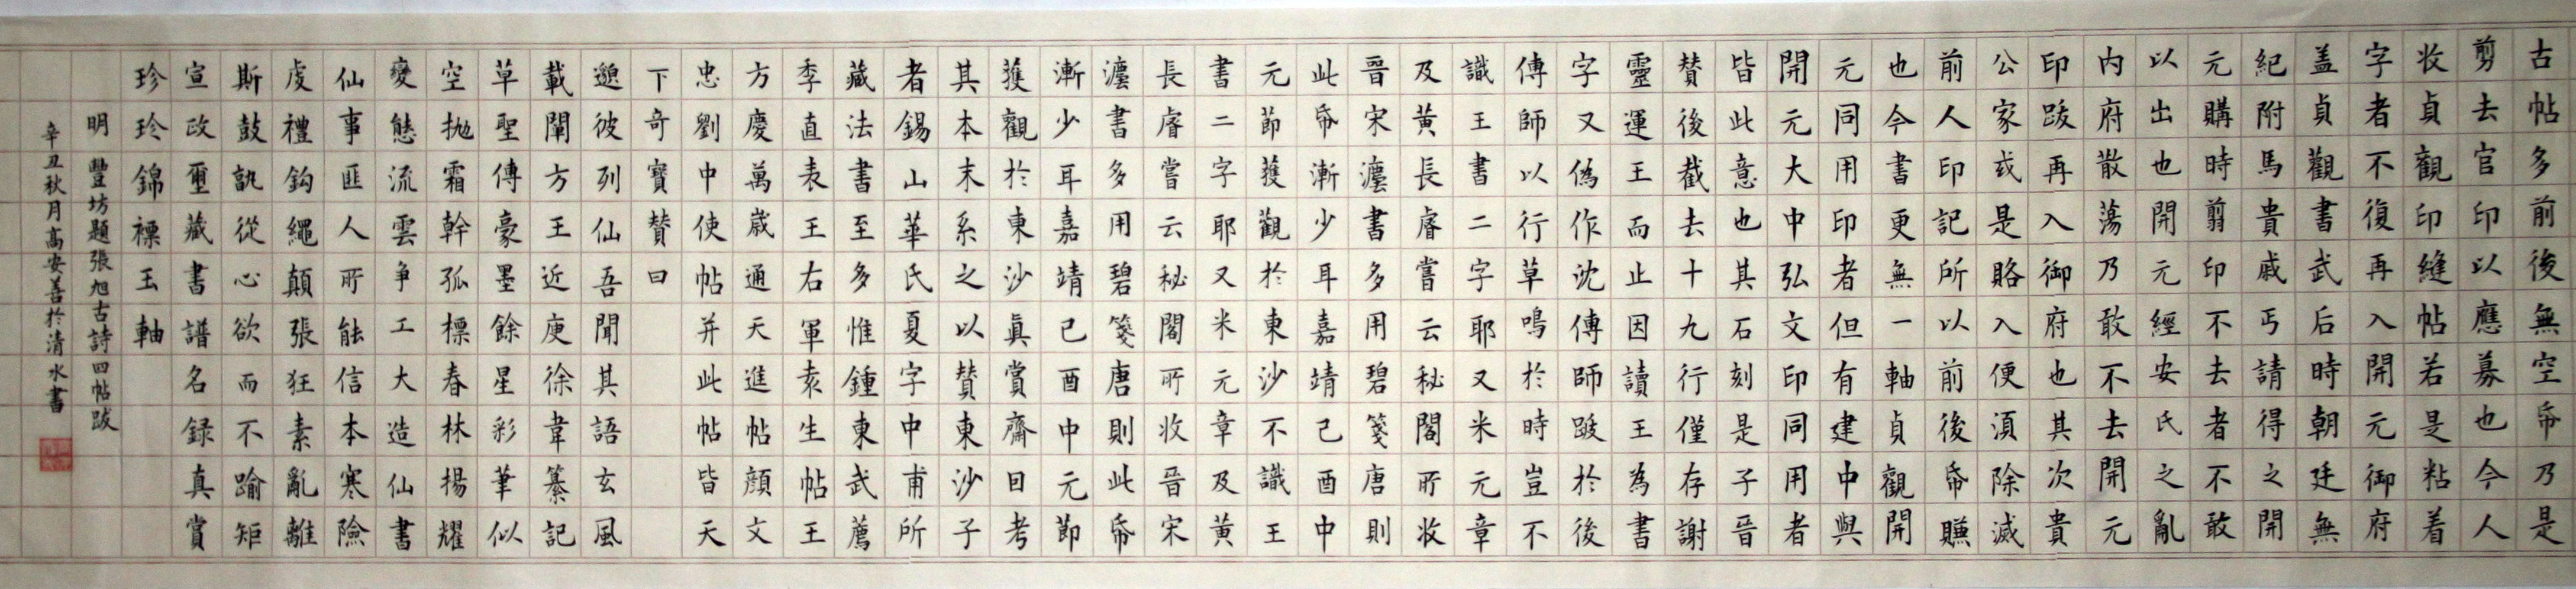 古帖多前後無空帋乃是
剪去官印以應募也今人
收貞觀印縫帖若是粘着
字者不復再入開元御府
盖貞觀書武后時朝廷無
紀附馬貴戚丐請得之開
元購時翦印不去者不敢
以出也開元經安氏之亂
内府散蕩乃敢不去開元
印跋再入御府也其次貴
公家或是賂入便須除滅
前人印記所以前後帋賺
也今書更無一軸貞觀開
元同用印者但有建中與
開元大中弘文印同用者
皆此意也其石刻是子晉
賛後截去十九行僅存謝
靈運王而止因讀王為書
字又偽作沈傅師跋於後
傅師以行草鳴於時豈不
識王書二字耶又米元章
及黄長睿嘗云秘閣所收
晉宋灋書多用碧箋唐則
此帋漸少耳嘉靖己酉中
元節獲觀於東沙不識王
書二字耶又米元章及黄
長睿嘗云秘閣所收晉宋
灋書多用碧箋唐則此帋
漸少耳嘉靖己酉中元節
獲觀於東沙眞賞齋曰考
其本末系之以賛東沙子
者錫山華氏夏字中甫所
藏法書至多惟鍾東武薦
季直表王右軍袁生帖王
方慶萬歲通天進帖顔文
忠劉中使帖并此帖皆天
下奇寶賛曰
邈彼列仙吾聞其語玄風
載闡方王近庾徐韋纂記
草聖傳豪墨餘星彩筆似
空抛霜幹孤標春林揚耀
變態流雲争工大造仙書
仙事匪人所能信本寒險
虔禮鈎繩顛張狂素亂離
斯鼓訛從心欲而不踰矩
宣政璽藏書譜名録真賞
珍珍錦褾玉軸
明 豐坊題張旭古詩四帖跋
辛丑秋月高安善於清水書